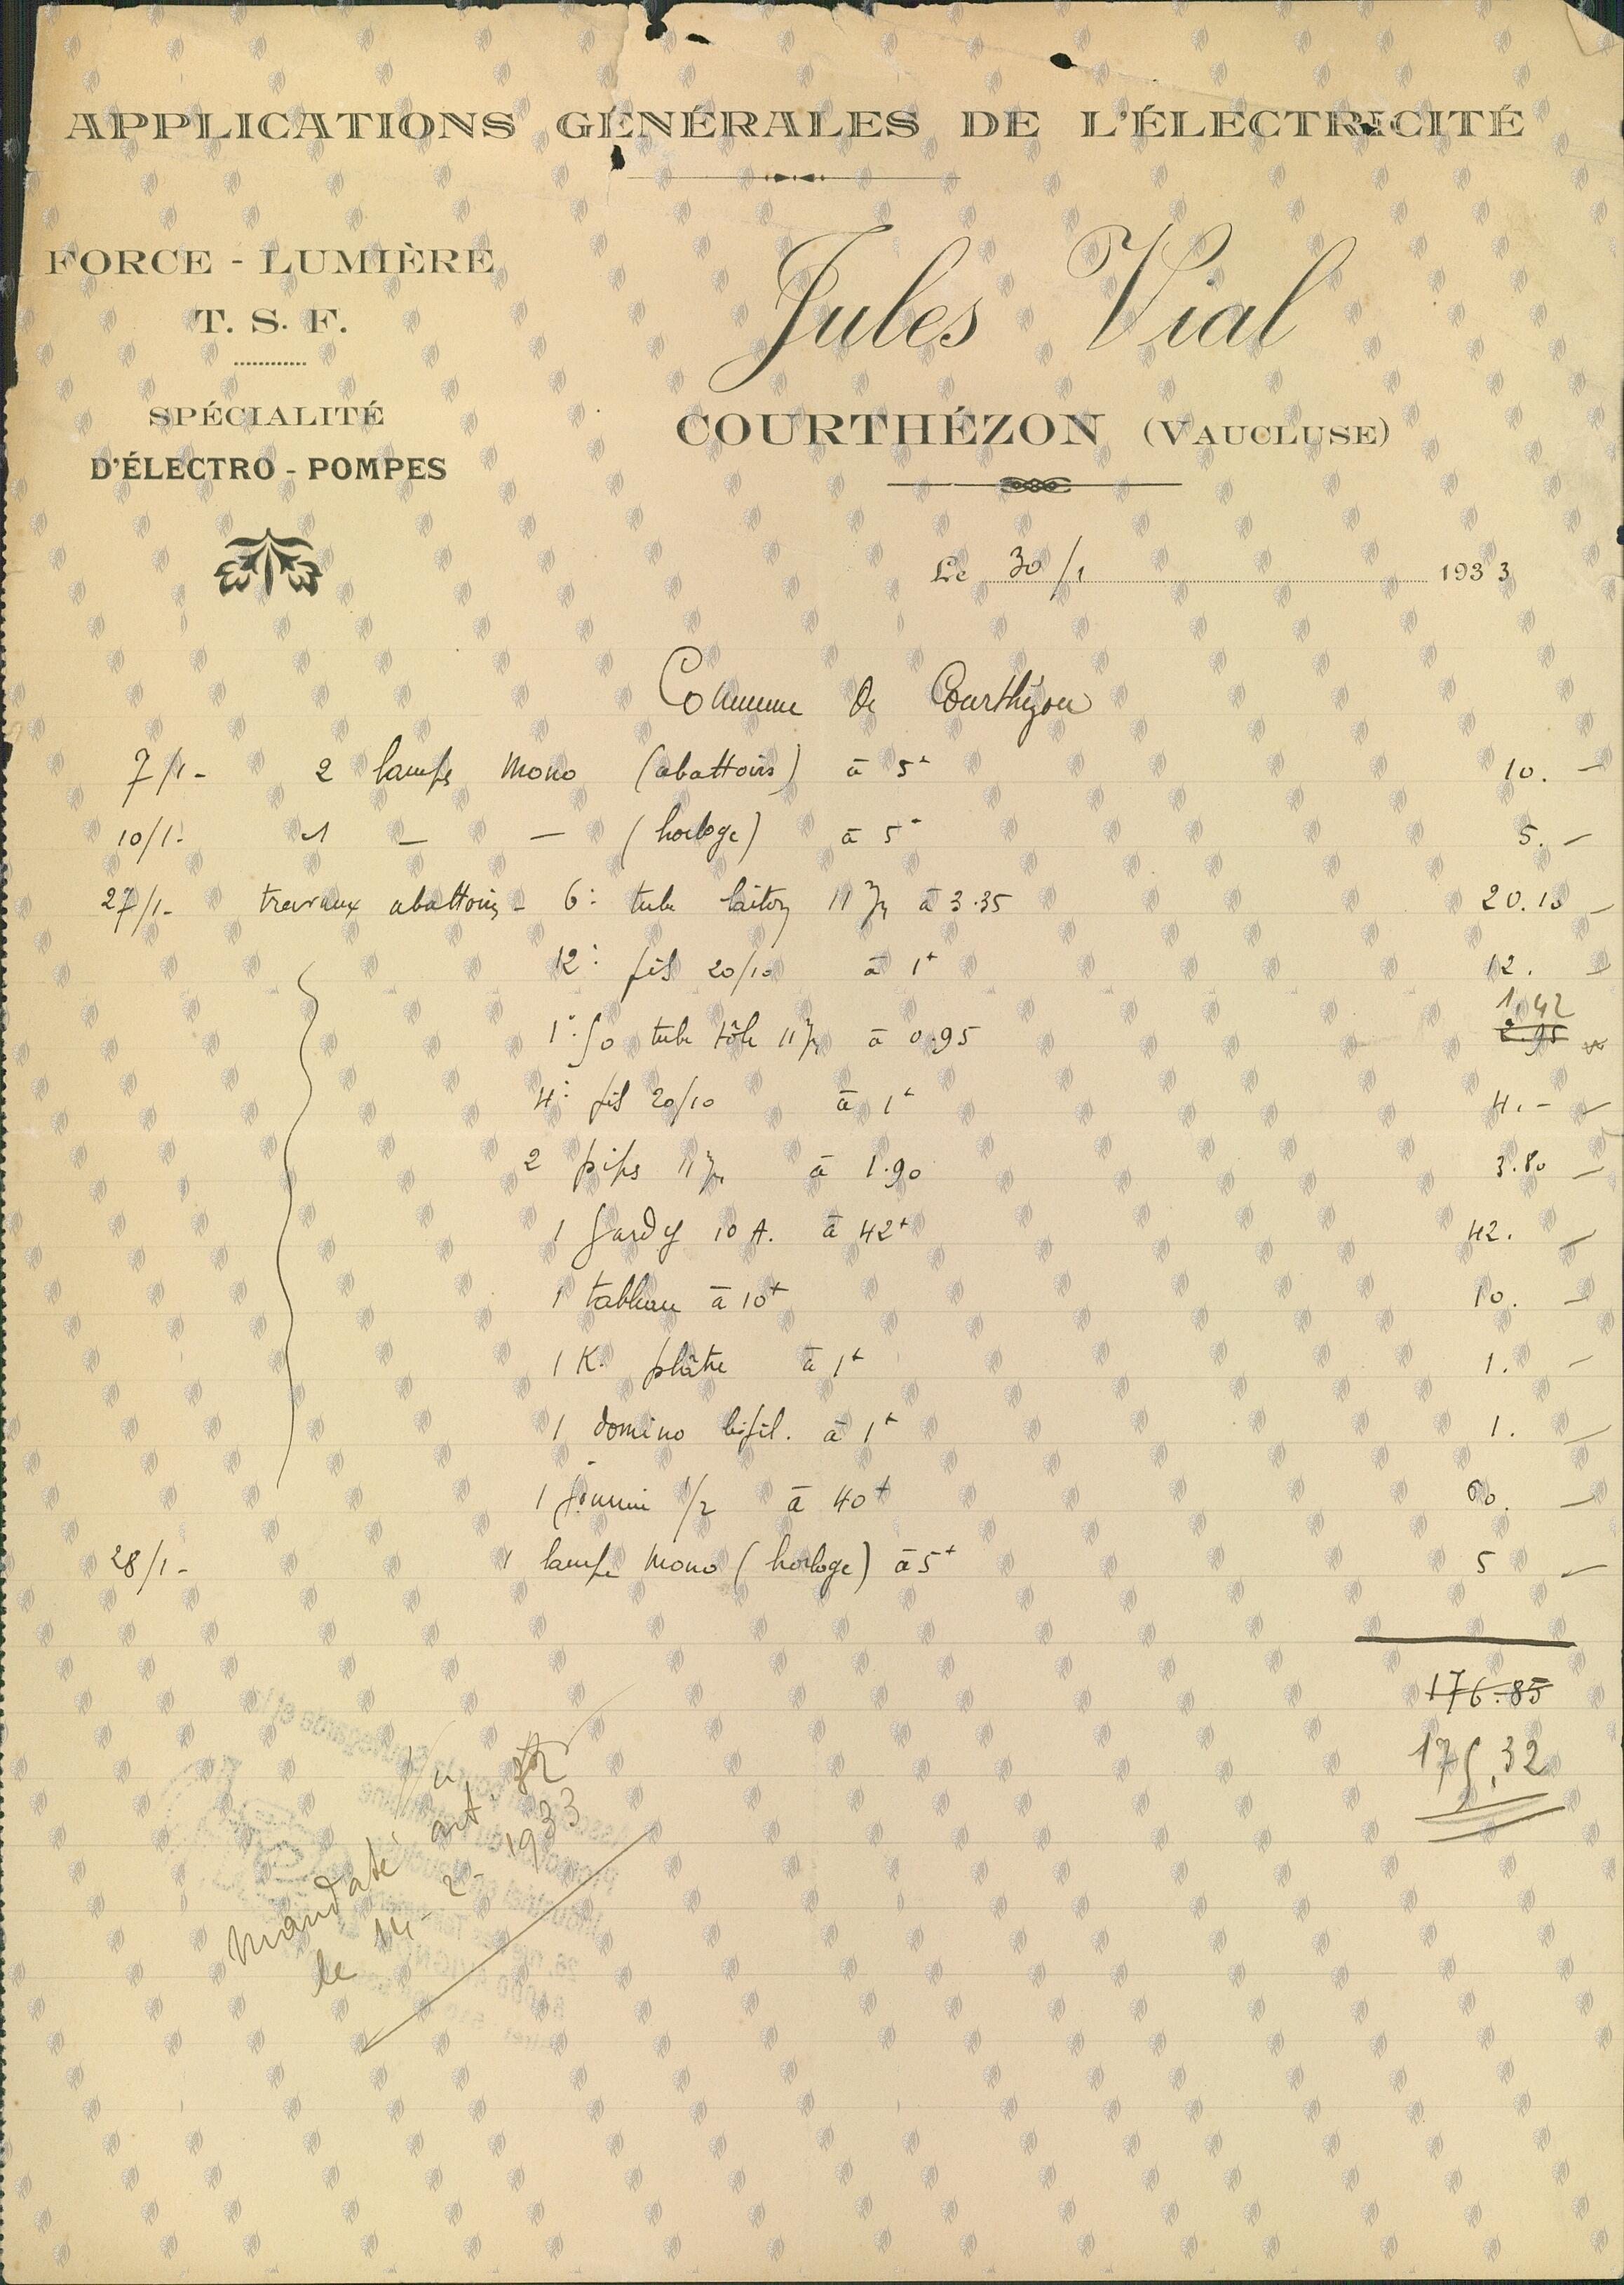 APPLICATIONS GÉNÉRALES DE L'ÉLECTRICITÉ
FORCE - LUMIÈRE
T. S. F.
SPÉCIALITÉ
D'ÉLECTRO - POMPES
Jules Vial
COURTHÉZON (VAUCLUSE)
Le 30/1 1933
Commune de Courthézon
7/1- 2 lampes mono (abattoirs) à 5 10. -
10/1- 1 - - (horloge) à 5 5. -
27/1- travaux abattoirs - 6: tube laiton 11 à 3.35 20.10 -
12: fil 20/10 à 1 12.
1:50 tube tôle 11 à 0.95 1,42 2.95
4: fil 20/10 à 1 4. -
2 pipes 11 à 1.90 3.80 -
1 Gardy 10 A. à 42 42. -
1 tableau à 10 10. -
1 K. plâtre à 1 1. -
1 domino bifil. à 1 1. -
1 1/2 à 40 60. -
28/1- 1 lampe mono (horloge) à 5 5 -
176.85
175,32
Mandaté art.
le 14-2-1933